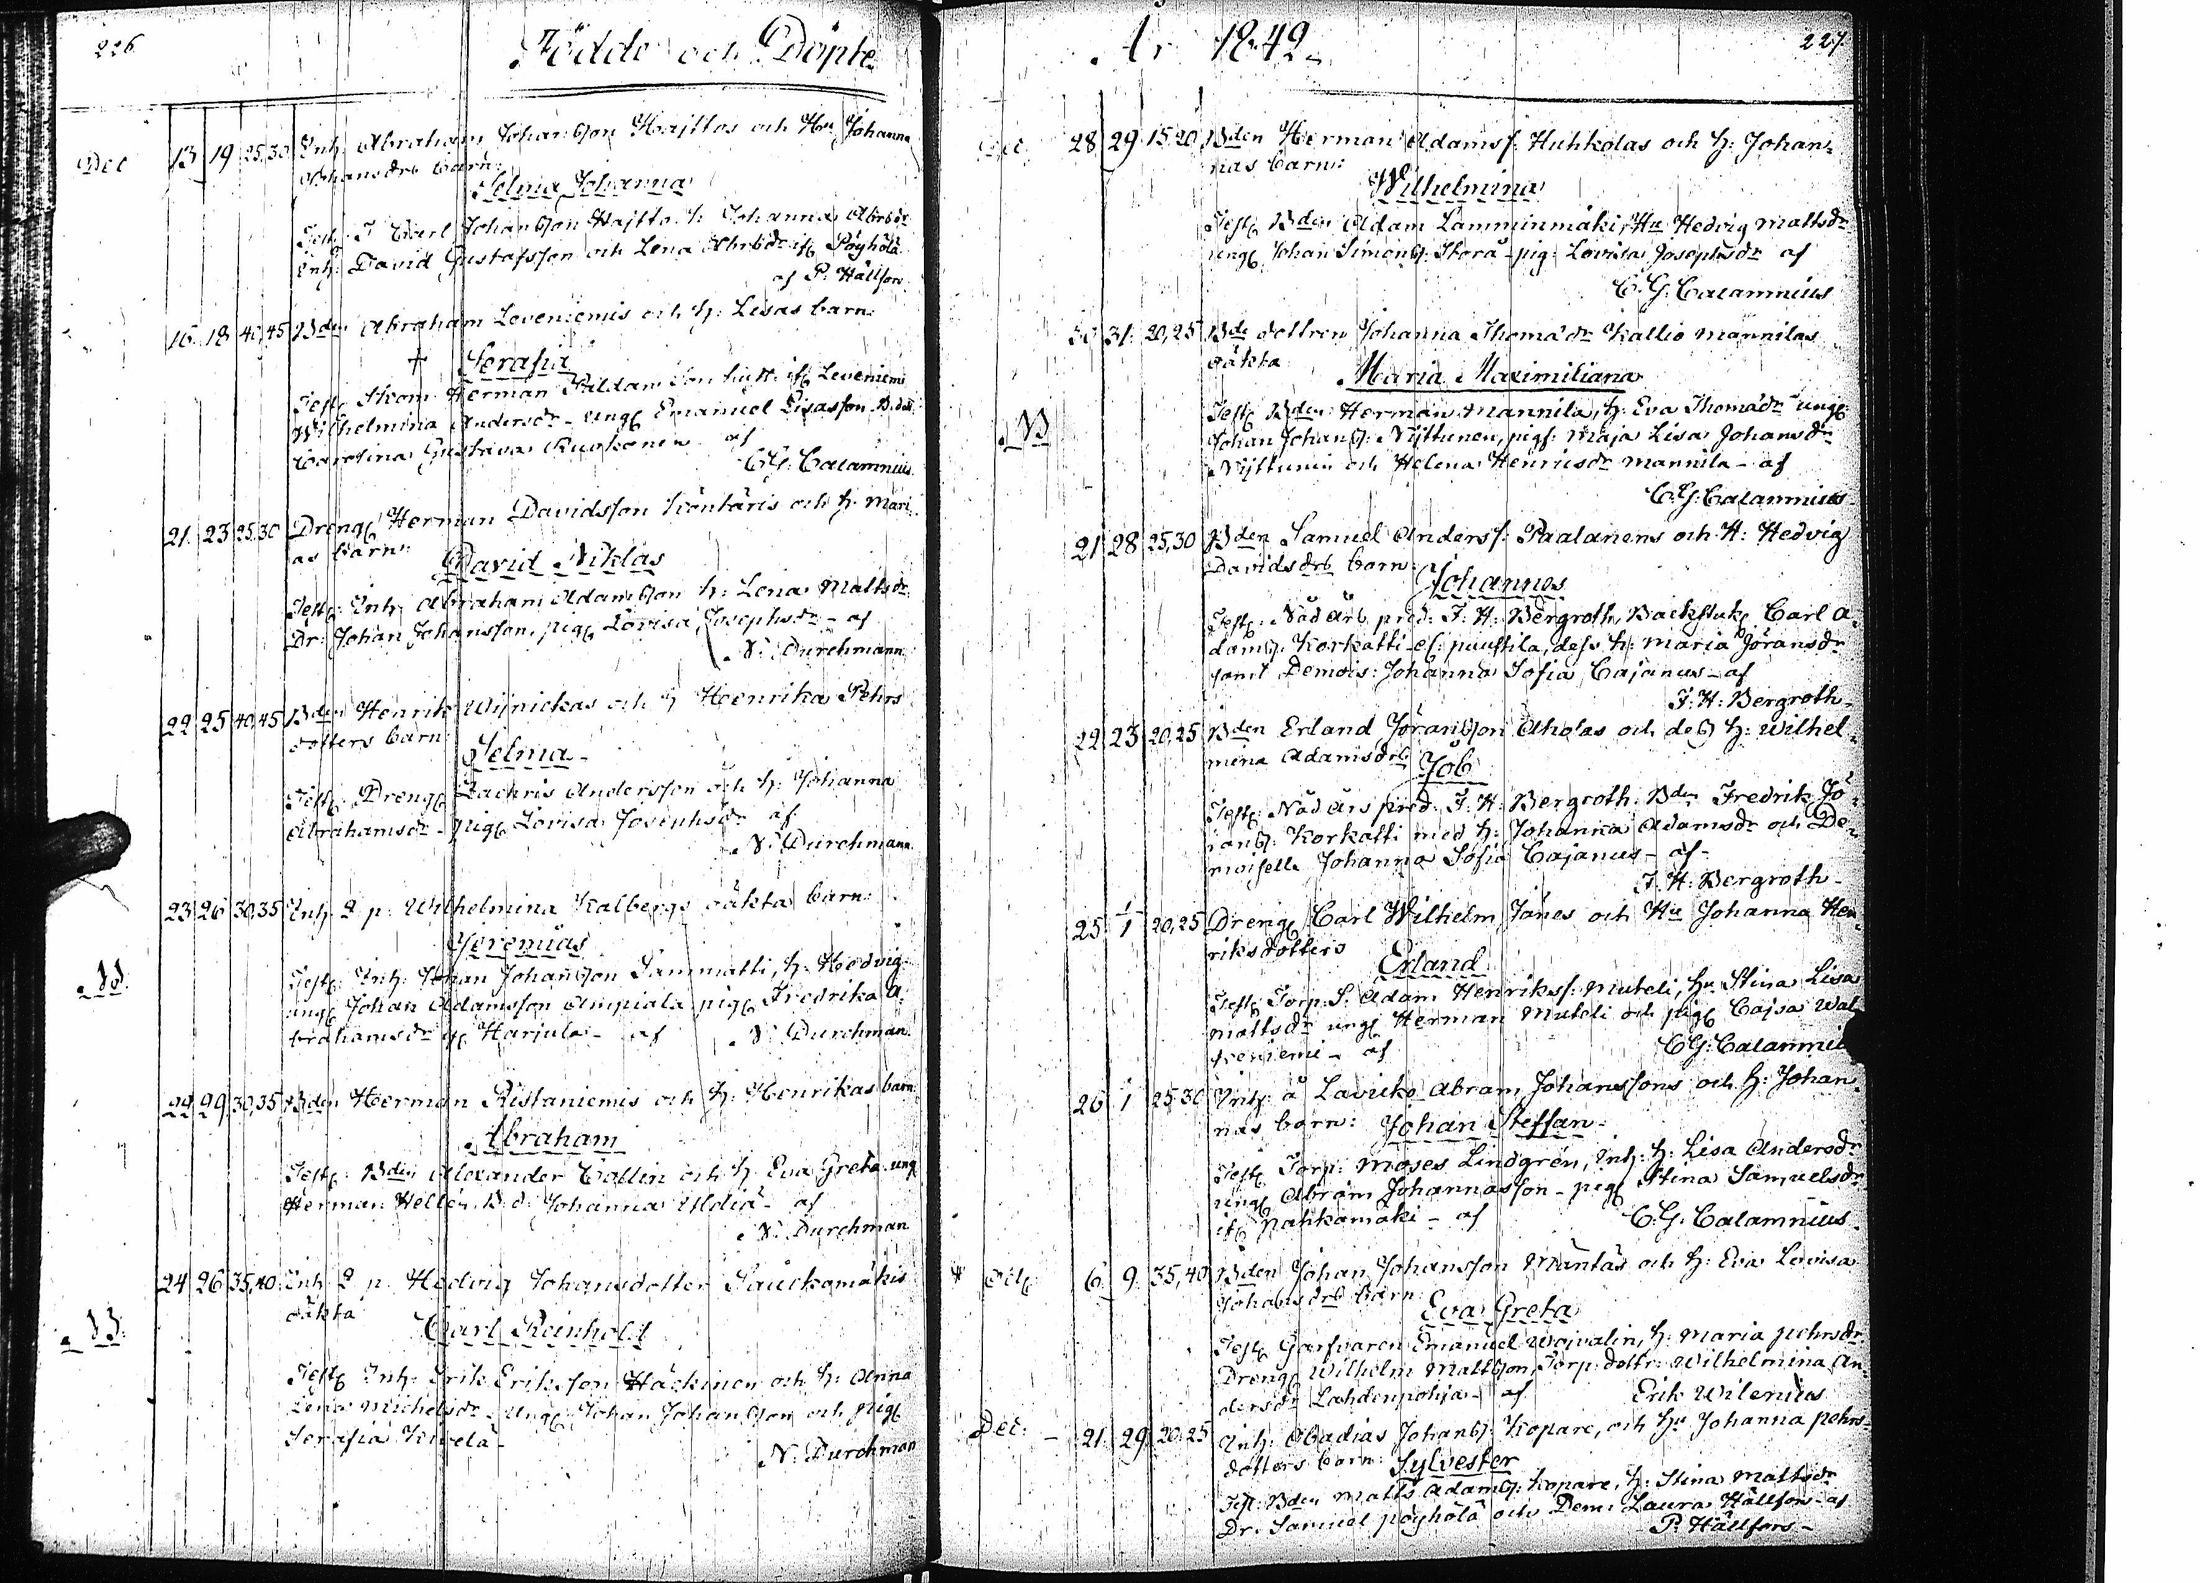 226
Födde och Döpte
Dec 13 19 25,30 Inh. Abraham Johansson Hajttos och Hu Johanna
barn:
Selma Johanna
Carl Johansson Hajtto h: Johanna Abrsdr
Inh: David Gustafsson och Lena Abrsdr if Pöyhölä
af P. Hällfors
16 18 40,45 Bden Abraham Leveniemis och h: Lisas barn:
† Serafia
Testg Skom. Herman Leveniemi
Wilhelmina Andersdr - ungg Emanuel Lisasson B.d.
Carolina Gustava Kuokonen af
C.G. Calamnius
21 23 25,30 Drengg Herman Davidsson Köntäris och h: Mari-
as barn:
David Niklas
Testg: Inh: Abraham Adamsson h: Lena Mattsdr
Dr: Johan Johansson, pigg Lovisa Josephsdr - af
N: Durchmann
22 25 40,45 Bden Henrik Wijnickas och h Heenrika Pehrs
dotters barn
Selma
Testg: Drengg Zachris Andersson och h: Johanna
Abrahamsdr - pigg Lovisa Josephsdr af
N: Durchmann
23 26 30,35 Inh. Q p: Wilhelmina Kalbergs oäkta barn:
Jeremias
N.
Testg: Inh: Johan Johansson Sammatti, h: Hedvig
ungg Johan Adamsson Ampiala pigg Fredrika A-
brahamsdr Harjula - af N: Durchman
29 30,35 Bden Herman Ristaniemis och h: Henrikas barn
Abraham
Testg: Bden Alexander Collin och h Eva Greta ung
Herman Hellén B.d: Johanna af
N: Durchman
24 26 35,40 Inh Q p. Hedvig Johansdotter Sauckomäkis
oäkta
Carl Reinhold
N.
Testg Inh: Erik Eriksson Häckinen och h: Anna
Lena Michelsdr - Ungg Johan Johansson och pigg
Serafia Kivelä -
N: Durchman
År 1849. 227
Dec. 28 29 15,20 Bden Herman Adamss. Huhkolas och h: Johan-
nas barn:
Wilhelmina
Testg Bden Adam Lamminmäki, Hu Hedvig Mattsdr
ungg Johan Simons: Storå - pig: Lovisa Josephsdr af
C.G. Calamnius
30 31 20,25 Bde dottren Johanna Thomädr Kallio Mannilas
oäkta
Maria Maximiliana
N
Testg Bden Herman Mannila, h: Eva Thomädr ungg
Johan Johans: Nijttunen, pigs: Maja Lisa Johansdr
Nijttunen och Helena Henricsdr Mannila - af
C.G. Calamnius
21 28 25,30 Bden Samuel Anderss: Paalanens och H: Hedvig
Davidsdrs barn:
Johannes
Testg: Nådårs pred: F: H: Bergroth, Backstug Carl A-
dams: Korkatti el: puustila, dess h: Maria Jöransdr
samt Demois: Johanna Sofia Cajanus - af
F: H: Bergroth
22 23 20,25 Bden Erland Jöransson Aholas och dess h: Wilhel-
mina Adamsdrs
Job
Testg: Nådårs pred: F: H: Bergroth: Bden Fredrik Jö-
rans: Korkatti med h: Johanna Adamsdr och De-
moiselle Johanna Sofia Cajanus - af -
F: H: Bergroth -
25 1/1 20,25 Drengg Carl Wilhelm Jänes och Hu Johanna Hen-
riksdotters
Erland
Testg Torp: S: Adam Henrikss: Muteli, hu Stina Lisa
Mattsdr ungg Herman Muteli och pigg Cajsa
af C.G: Calamnius
26 1/1 25,30 Inh: å Lavicko Abram Johanssons och h: Johan-
nas barn: Johan Steffan -
Testg Torp: Moses Lindgrén, Inh: h: Lisa Andersdr
ungg Abram Johannasson - pigg Stina Samuelsdr
if Nahkamäki - af C.G. Calamnius
* Oct. 6 9 35,40 Bden Johan Johansson Mäntäs och h: Eva Lovisa
Johansdrs barn:
Eva Greta
Testg Garfvaren Emanuel Wojvalin, h: Maria Pehrsdr
Drengg Wilhelm Mattsson, Torp. dottr: Wilhelmina An-
dersdr Lahdenpohja - af Erik Wilenius
Dec: - 21 29 20,25 Inh: Obadias Johans: Kopare, och hu Johanna Pehrs-
dotters barn: Sylvester
Test: Bden Matts Adams: Kopare, h: Stina Mattsdr
Dr. Samuel Pöyhölä och Dem: Laura Hällfors - af
P. Hällfors -